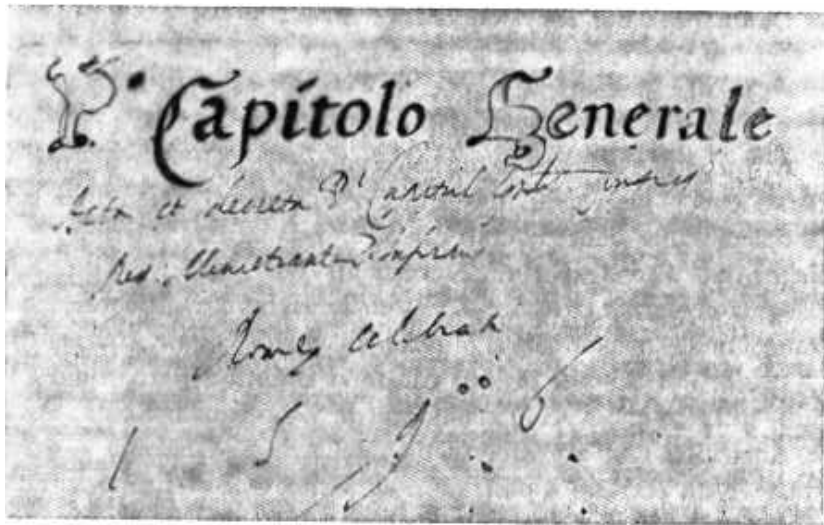 P.º Capitolo Generale
Acta et decreta P.i Capituli
Ministrant Infirmis
Romę celebrati
1 5 9 6